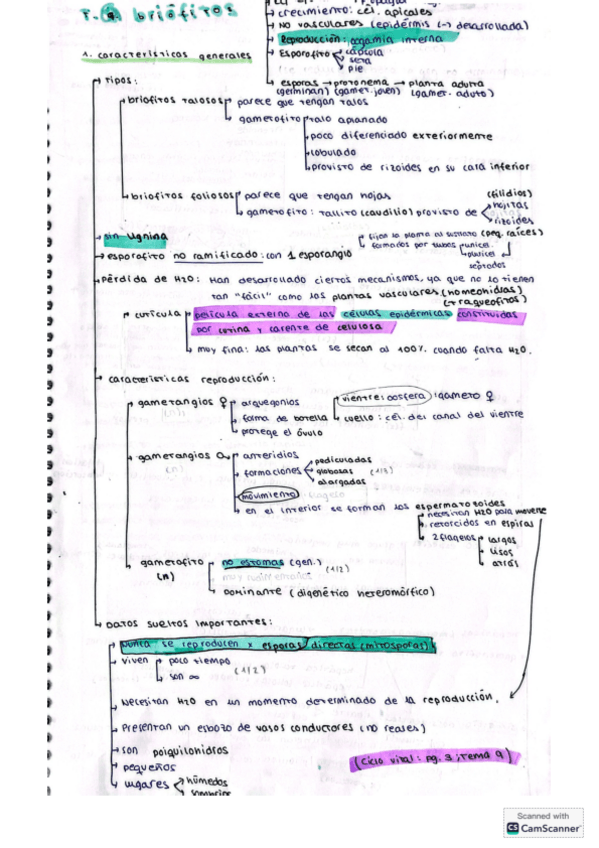 T.9 briófitos
crecimiento: cél. apicales
NO vasculares (epidermis (→) desarrollada)
Reproducción: oogamia interna
Esporofito cápsula
seta
pie
1. características generales
esporas → protonema → planta adulta
(germinan) (gamet. joven) (gamet. adulto)
tipos:
briofitos talosos parece que tengan talos
gametofito talo aplanado
poco diferenciado exteriormente
lobulado
provisto de rizoides en su cara inferior
briofitos foliosos parece que tengan hojas (filidios)
gametofito: tallito (caudilio) provisto de hojitas
rizoides
sin lignina
fijan la planta al sustrato (peq. raíces)
formados por tubos unice.
plurice.
septados
esporofito no ramificado: con 1 esporangio
pérdida de H2O: Han desarrollado ciertos mecanismos, ya que no lo tienen
tan "fácil" como las plantas vasculares (homeohidras)
(traqueofitos)
cutícula película externa de las células epidérmicas constituidas
por cutina y carente de celulosa
muy fina: las plantas se secan al 100% cuando falta H2O.
características reproducción:
gametangios ♀ arquegonios
forma de botella
protege el óvulo
vientre: oosfera: gameto ♀
cuello: cél. del canal del vientre
gametangios ♂ anteridios
formaciones pediculadas
globosas (1/2)
alargadas
movimiento
en el interior se forman los espermatozoides
necesitan H2O para moverse
retorcidos en espiras
2 flagelos largos
lisos
atrás
gametofito no estomas (gen.)
(n) (1/2)
dominante (digenético heteromórfico)
Datos sueltos importantes:
Nunca se reproducen x esporas directas (mitosporas)
viven poco tiempo
(1/2)
son ∞
Necesitan H2O en un momento determinado de la reproducción.
Presentan un esbozo de vasos conductores (no reales)
son poiquilohidros
pequeños
lugares húmedos
sombríos
(ciclo vital: pg. 3; tema 9)
Scanned with
CS CamScanner